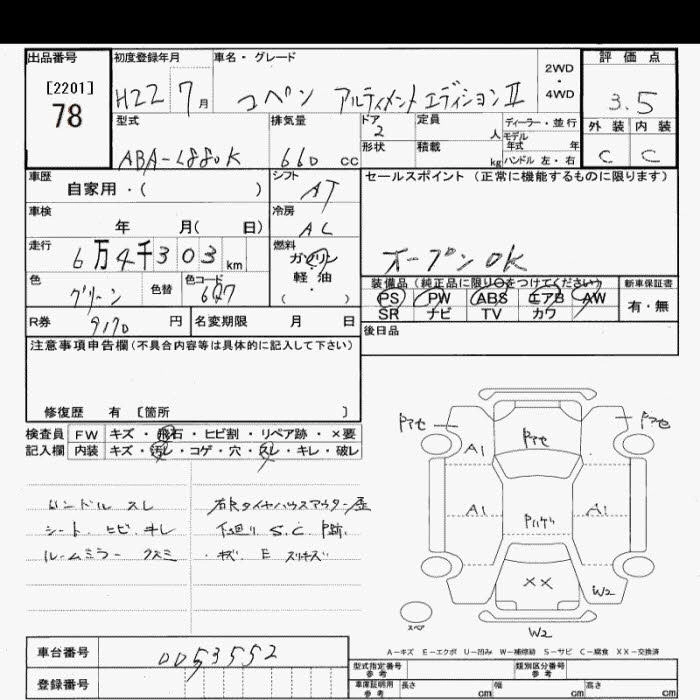 出品番号 初度登録年月 車名・グレード 評価点
[2201]
78
H22 7月 コペン アルティメントエディションⅡ
2WD
・
4WD
3.5
型式 排気量 ドア 定員 ディーラー・並行
2 人 モデル
年式 年
外装 内装
ABA-L880K 660 cc 形状 積載 kg ハンドル 左・右
C C
車歴 シフト セールスポイント(正常に機能するものに限ります)
自家用・( ) AT
車検 冷房
年 月( 日) AC
走行 燃料
6万4千303km ガソリン
・
軽・油
( )
オープンOK
色 色替 色コード
グリーン 607
装備品(純正品に限り○をつけてください) 新車保証書
PS PW ABS エアB AW 有・無
SR ナビ TV カワ
R券 9170 円 名変期限 月 日
後日品
注意事項申告欄(不具合内容等は具体的に記入して下さい)
修復歴 有 [箇所 ]
検査員 FW キズ・飛石・ヒビ割・リペア跡・×要
記入欄 内装 キズ・汚レ・コゲ・穴・スレ・キレ・破レ
ハンドル スレ
シート ヒビ キレ
ルームミラー クスミ
右Rタイヤハウスアウター歪
下廻り S.C. P跡.
・キズ E スリキズ
Pアセ Pアセ Pアセ
A1
A1 Pハゲ A1
XX
W2
スペア
W2
A-キズ E-エクボ U-凹み W-補修跡 S-サビ C-腐食 XX-交換済
車台番号 0053552
登録番号
型式指定番号
参考
類別区分番号
参考
車庫証明用
参考
長さ cm 幅 cm 高さ cm